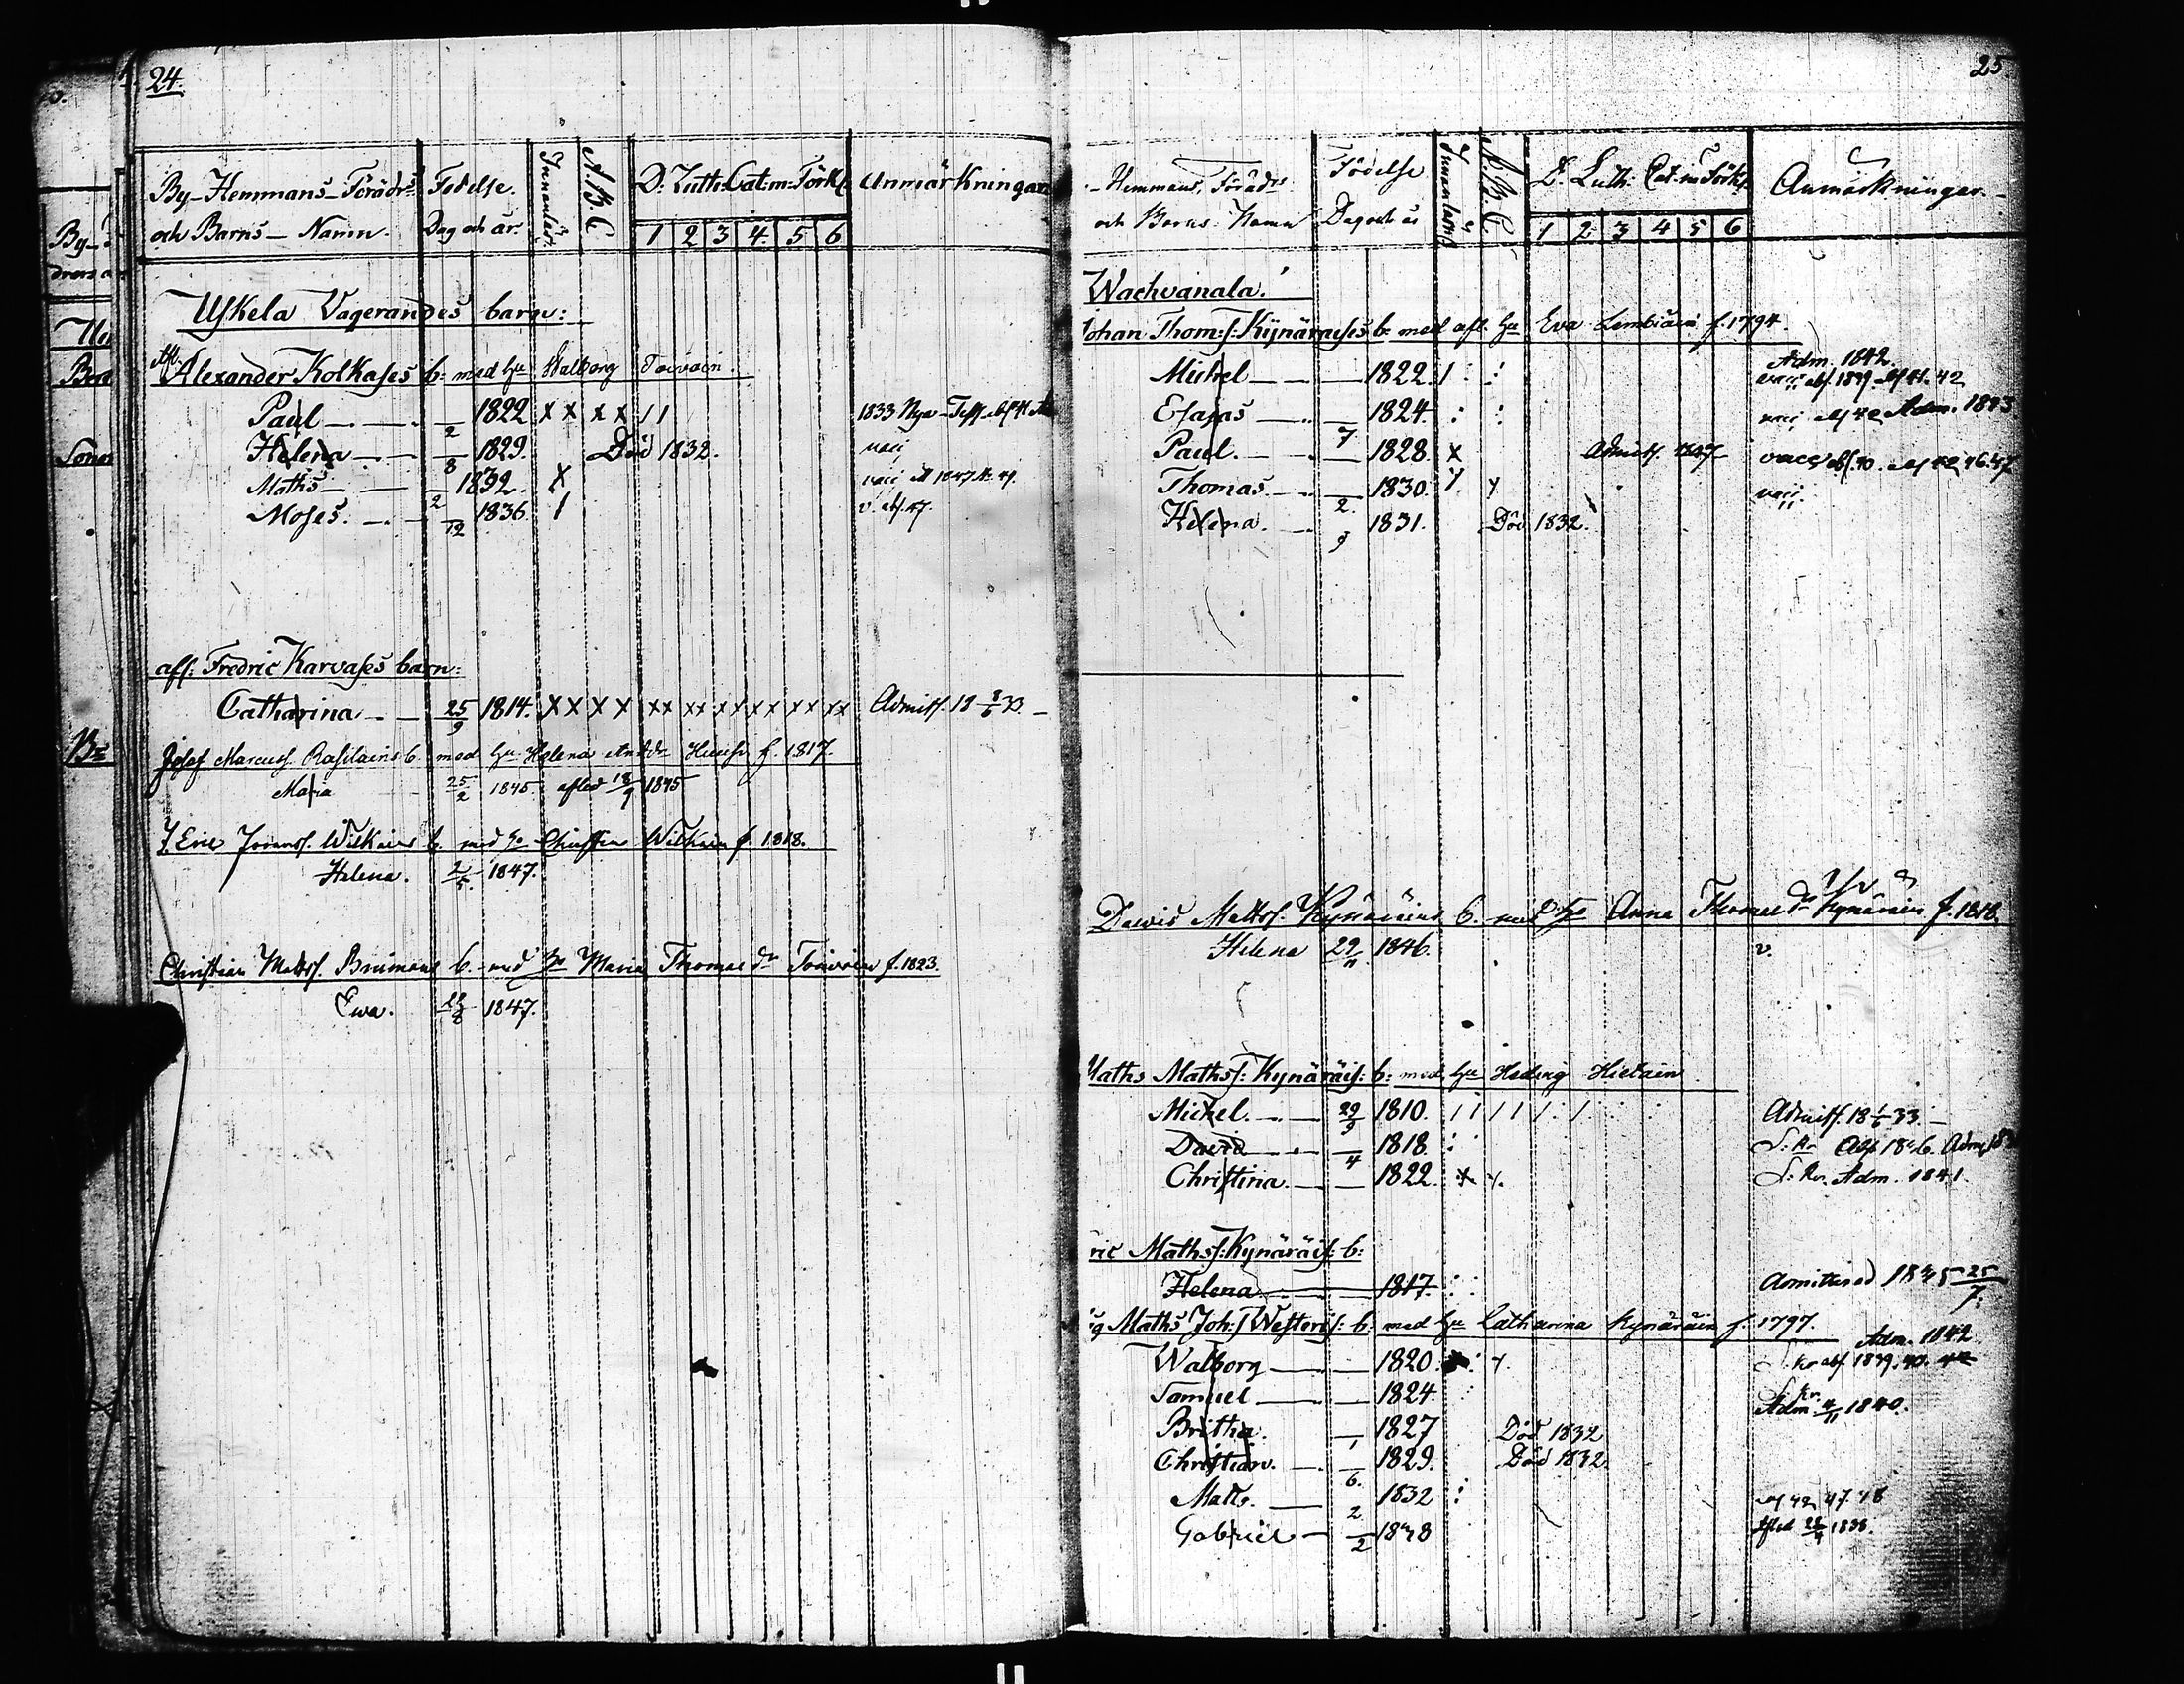 24
By-Hemmans-Föräldrs
och Barns-Namn.
Födelse.
Dag och år.
Innanläsn.
A.B.C
D. Luth: Cat: m: Förkl.
1 2 3 4. 5 6
Anmärkningar
Uskela Vagerandes barn:
Afl. Alexander Kolkases b: med hu Walborg Toivain
Paul 1822 x x x x / / 1833 Nya-Test.
Helena 2/ 1829. Död 1832. vacc
Maths 8/ 1832. x vacc
Moses. 2/12 1836. / v. abs. 47.
afl: Fredric Karvases barn:
Catharina 25/9 1814. xx x x xx xx xx xx xx xx Admitt. 18 /6 33.
Josef Marcuss. Rasilains b. med hu Helena f. 1817.
Maria 25/2 1845. afled 18/9 1845
Eric Wilkains b. med hu Wilkain f. 1818.
Helena. 2/5. 1847.
Christian Matss. b. med hu Maria Thomae dr Toivain f. 1823.
Ewa. 1847.
25
-Hemmans, Föräldrs.
och Barns: Namn
Födelse
Dag och år
A.B.C
D. Luth: Cat: m Förkl.
1 2 3 4 5 6
Anmärkningar.
Wachvanala.
Johan Thom:s: Kynäräises b: med afl. hu Eva Lembiäin f. 1794.
Adm. 1842.
Michel 1822. / : : vacc abs. 1839 42
Esaias 1824. : : vacc abs 42 Adm. 1843
Paul. 7 1828. x Admitt. 1847 vacc abs. 40. 46.47
Thomas. 1830. y. y vacc.
Helena. 2./9 1831. Död 1832.
Dawid Matts. Kynäräins b. med hu Anna Thomae dr Kynäräin f. 1818.
Helena 29/11 1846. v.
Maths Mathss: Kynäräis: b: med hu Hedvig Hietain
Michel 29/9 1810. / / / / / / Admitt. 18 /6 33.
David 1818. :
Christina. 4 1822. x y. S: kr. Adm. 1841.
ric Mathss: Kynäräis: b:
Helena 1817. : : Admitterad 1845 25/7:
Maths Joh:s Westeris: b: med hu Catharina Kynäräin f 1797.
Adm. 1842
Walborg 1820. : y. S. kr abs. 1839. 40. 42
Samuel 1824. : S. kr.
Adm. 4/11 1840.
Britha. 1827 Död 1832
Christian. 1 1829. Död 1832.
Maths. 6. 1832 : abs 42, 47. 48
Gabriel 2 /2 1838 afled 1838.